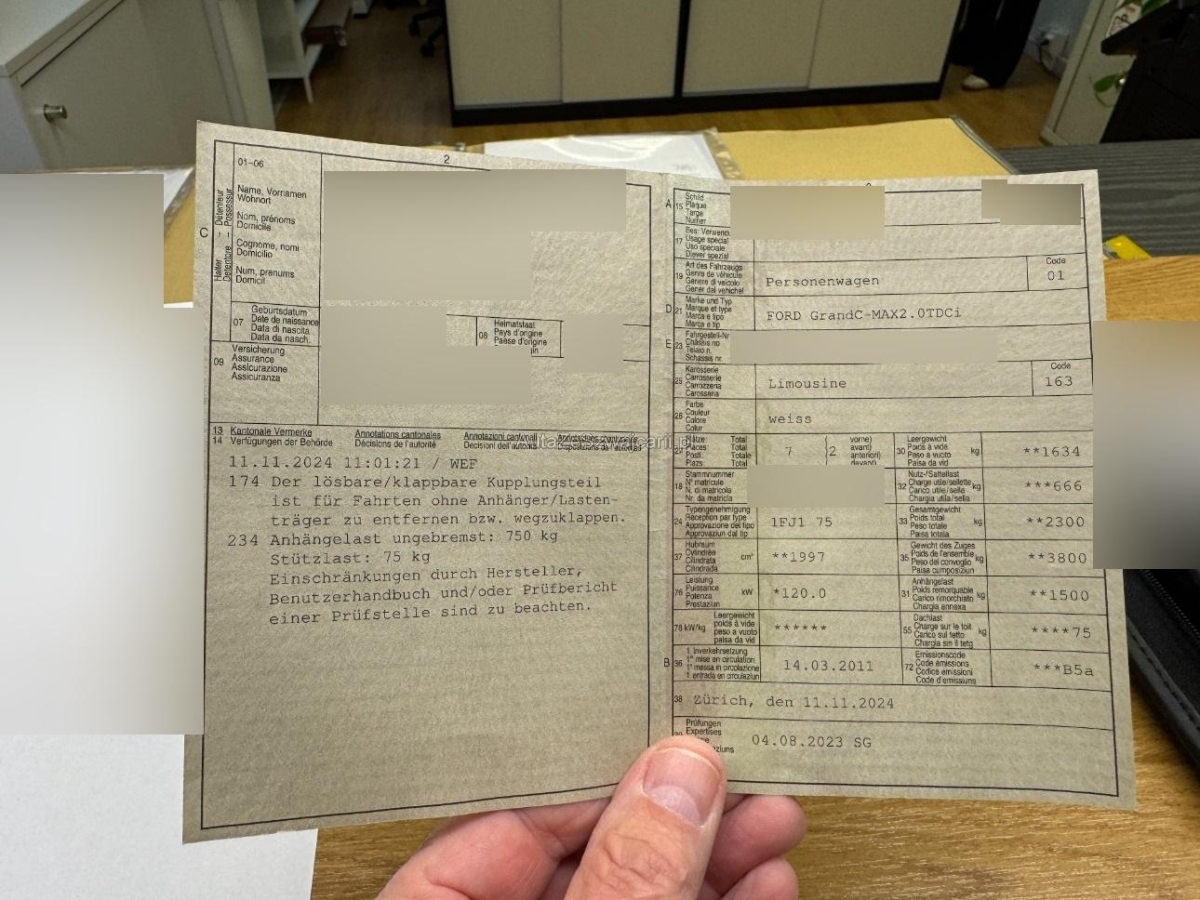 2
01-06
Name, Vornamen
Wohnort
Nom, prénoms
Domicile
Cognome, nomi
Domicilio
Num, prenums
Domicil
C
Halter Détenteur
07
Geburtsdatum
Date de naissance
Data di nascita
Data da nasch.
08
Heimatstaat
Pays d'origine
Paese d'origine
09
Versicherung
Assurance
Assicurazione
Assicuranza
13 Kantonale Vermerke Annotations cantonales Annotazioni cantonali
14 Verfügungen der Behörde Décisions de l'autorité Decisioni dell'autorità
11.11.2024 11:01:21 / WEF
174 Der lösbare/klappbare Kupplungsteil
ist für Fahrten ohne Anhänger/Lasten-
träger zu entfernen bzw. wegzuklappen.
234 Anhängelast ungebremst: 750 kg
Stützlast: 75 kg
Einschränkungen durch Hersteller,
Benutzerhandbuch und/oder Prüfbericht
einer Prüfstelle sind zu beachten.
A 15
Schild
Plaque
Targa
Numer
17
Bes. Verwend.
Usage spécial
Uso speciale
Diever spezial
19
Art des Fahrzeugs
Genre de véhicule
Genere di veicolo
Gener dal vehichel
Personenwagen
Code
01
D 21
Marke und Typ
Marque et type
Marca e tipo
Marca e tip
FORD GrandC-MAX2.0TDCi
E 23
Fahrgestell-Nr
Châssis no
Telaio n.
Schassis nr.
25
Karosserie
Carrosserie
Carrozzeria
Carossaria
Limousine
Code
163
26
Farbe
Couleur
Colore
Colur
weiss
27
Plätze Total
Places Total
Posti: Totale
Plazs: Totale
7
2
vorne)
avant)
anteriori)
30
Leergewicht
Poids à vide
Peso a vuoto
Paisa da vid
kg
**1634
18
Stammnummer
N° matricule
N. di matricola
Nr. da matricla
32
Nutz-/Sattellast
Charge utile/sellette
Carico utile/sella
Chargia utila/sella
kg
***666
24
Typengenehmigung
Réception par type
Approvazione del tipo
Approvaziun dal tip
1FJ1 75
33
Gesamtgewicht
Poids total
Peso totale
Paisa totala
kg
**2300
37
Hubraum
Cylindrée
Cilindrata
Cilindrada
cm³
**1997
35
Gewicht des Zuges
Poids de l'ensemble
Peso del convoglio
Paisa cumposiziun
kg
**3800
76
Leistung
Puissance
Potenza
Prestaziun
kW
*120.0
31
Anhängelast
Poids remorquable
Carico rimorchiato
Chargia annexa
kg
**1500
78 kW/kg
Leergewicht
poids à vide
peso a vuoto
paisa da vid
******
55
Dachlast
Charge sur le toit
Carico sul tetto
Chargia sin il tetg
kg
****75
B 36
1. Inverkehrsetzung
1re mise en circulation
1a messa in circolazione
1. entrada en circulaziun
14.03.2011
72
Emissionscode
Code émissions
Codice emissioni
Code d'emissiuns
***B5a
38 Zürich, den 11.11.2024
Prüfungen
Expertises
04.08.2023 SG